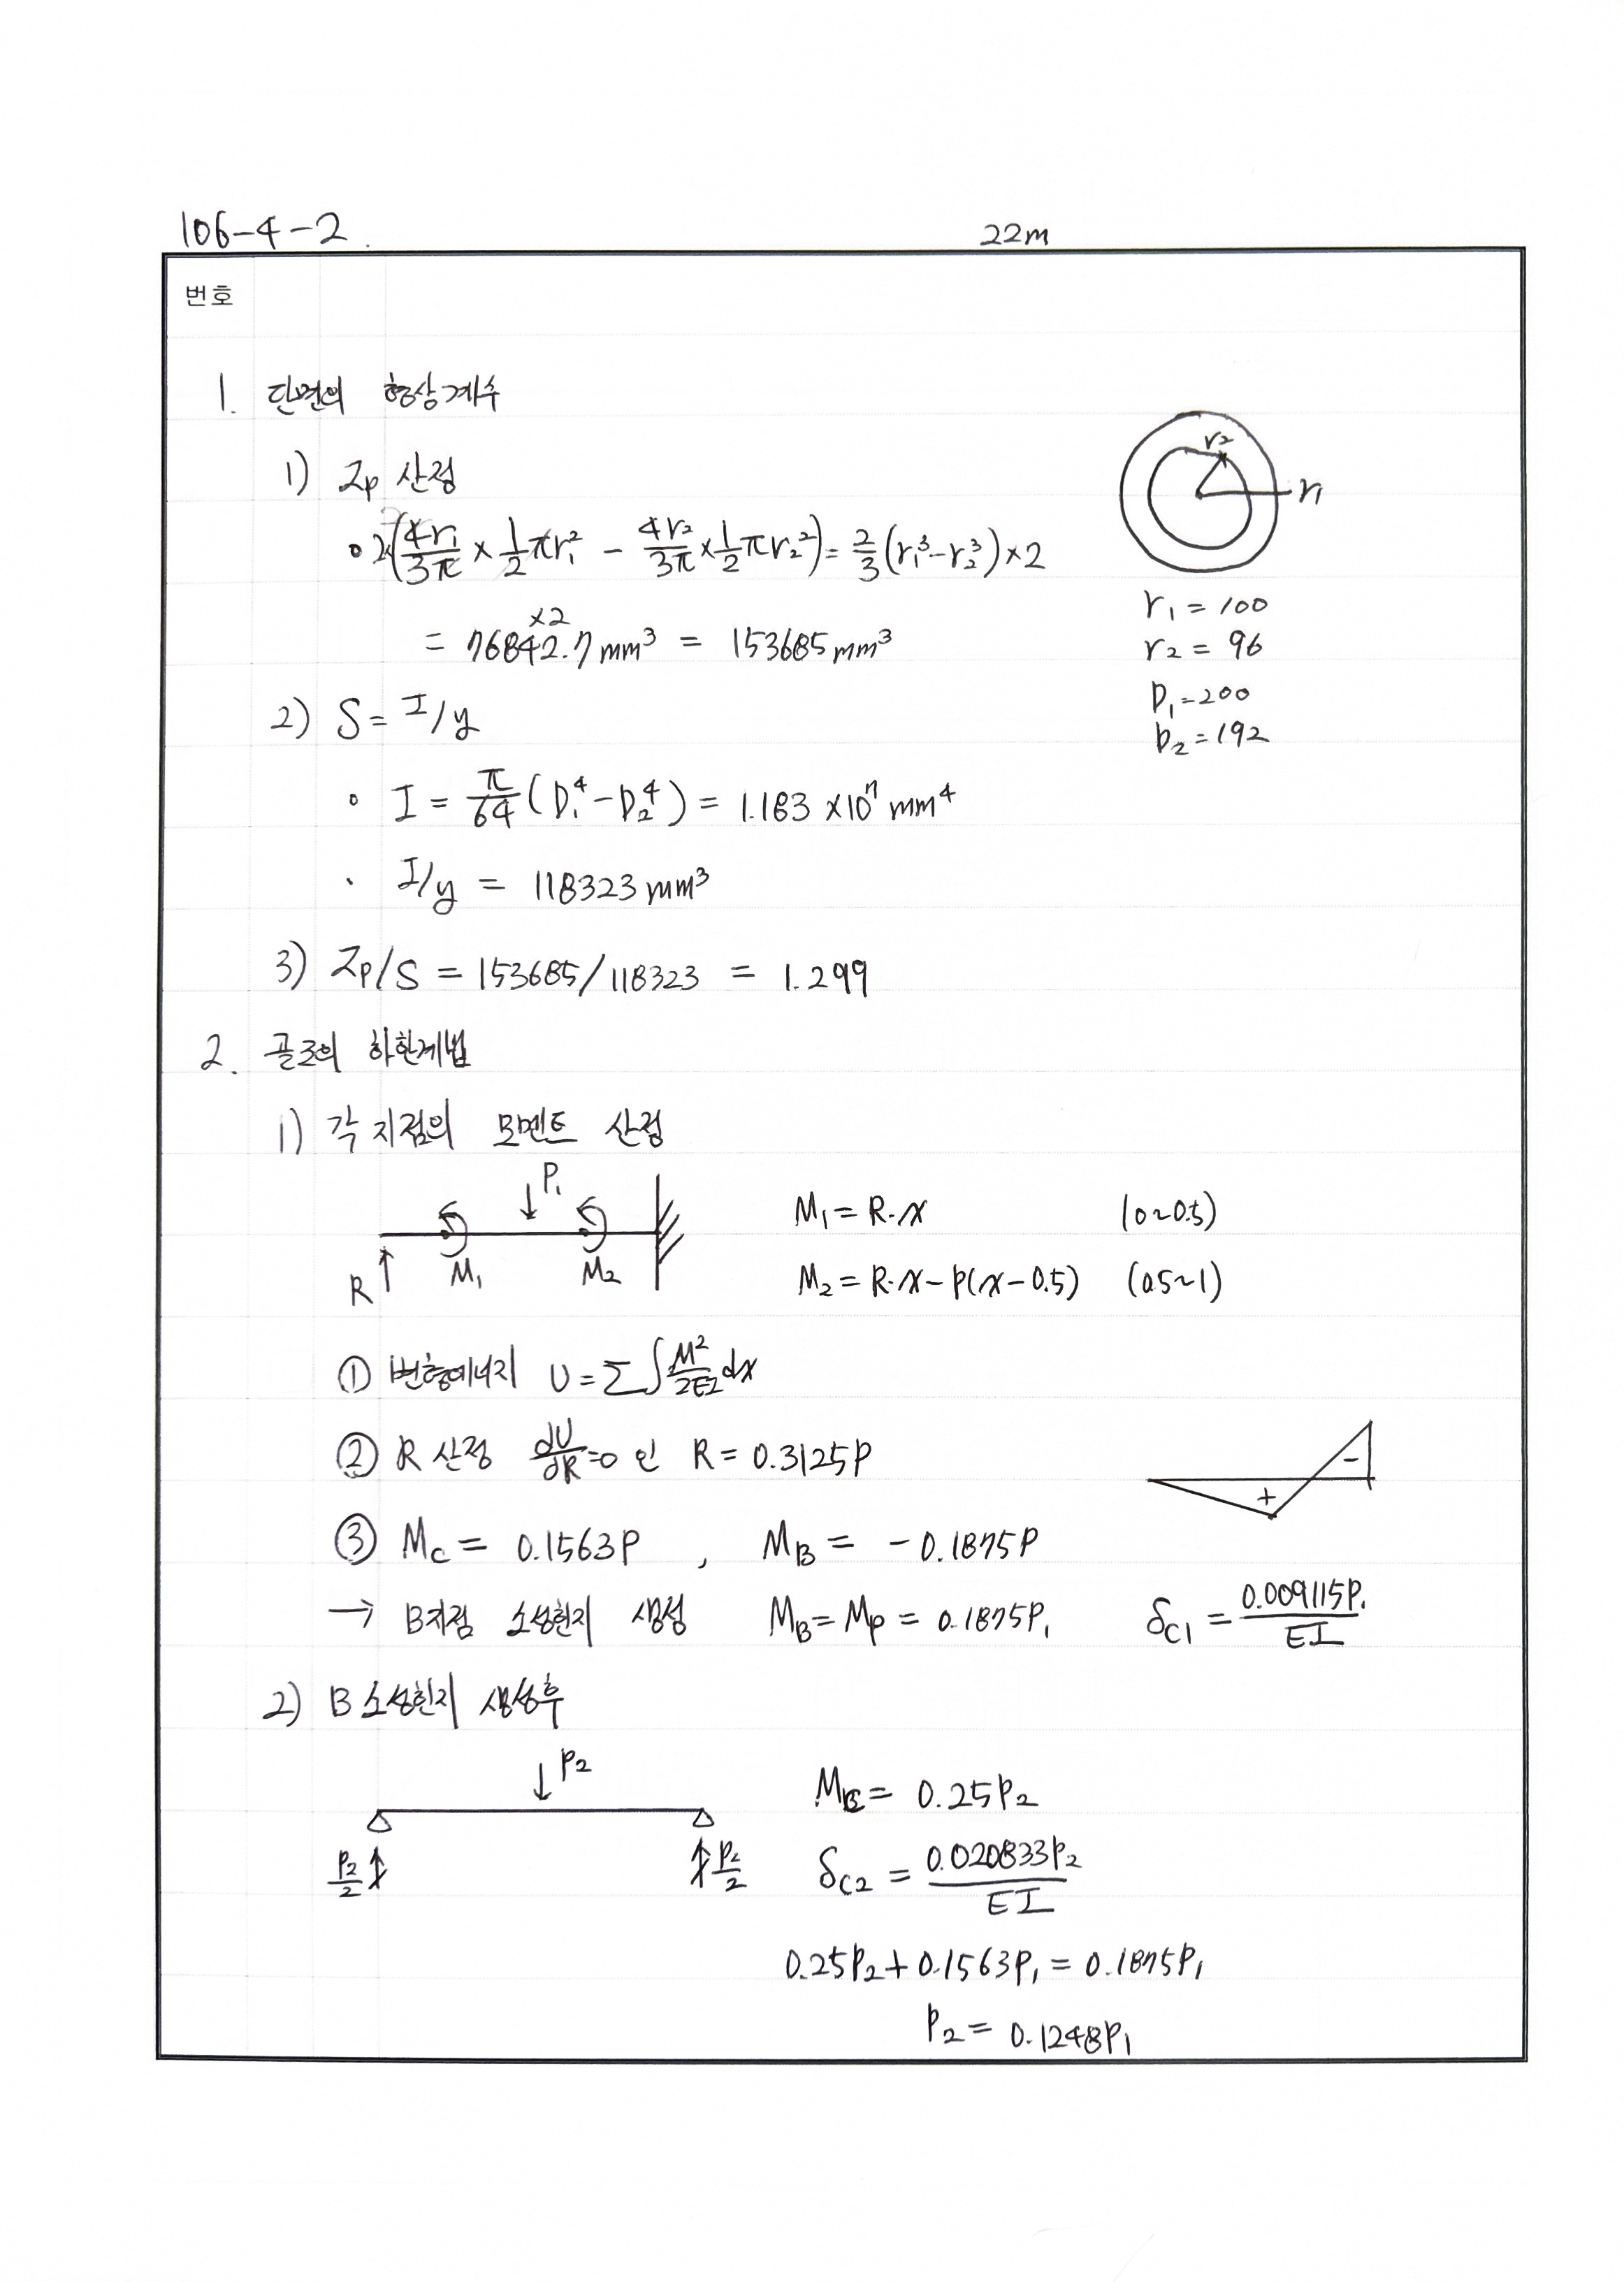 106-4-2.
22m
번호
1. 단면의 형상계수
1) Zp 산정
r2
r1
∘ 2(4r1/3π × 1/2 πr1² - 4r2/3π × 1/2 πr2²) = 2/3 (r1³-r2³) ×2
×2
= 76842.7mm³ = 153685mm³
r1 = 100
r2 = 96
D1=200
D2=192
2) S = I/y
∘ I = π/64 (D1⁴-D2⁴) = 1.183 ×10⁷ mm⁴
· I/y = 118323mm³
3) Zp/S = 153685/118323 = 1.299
2. 골조의 하한계법
1) 각 지점의 모멘트 산정
P1
R
M1
M2
M1 = R·x (0~0.5)
M2 = R·x-P(x-0.5) (0.5~1)
① 변형에너지 U = Σ∫M²/2EI dx
② R 산정 dU/dR=0 인 R = 0.3125P
+
-
③ Mc = 0.1563P , MB = -0.1875P
→ B지점 소성힌지 생성 MB = Mp = 0.1875P1 δc1 = 0.009115P1/EI
2) B 소성힌지 생성후
P2
P2/2
P2/2
Mc = 0.25P2
δc2 = 0.020833P2/EI
0.25P2+0.1563P1 = 0.1875P1
P2 = 0.1248P1